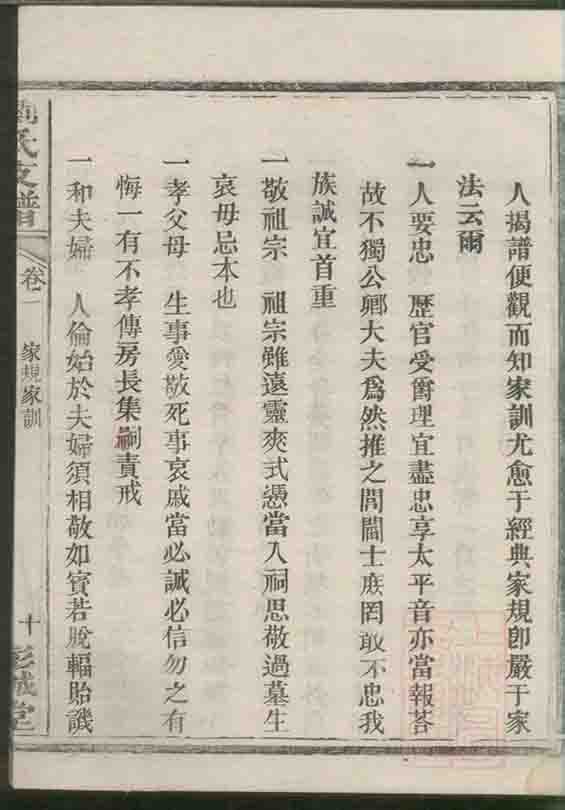 人揭譜便觀而知家訓尤愈于經典家規卽嚴于家
法云爾
一人要忠 歷官受爵理宜盡忠享太平音亦當報荅
故不獨公卿大夫爲然推之閭閻士庶罔敢不忠我
族誠宜首重
一敬祖宗 祖宗雖遠靈爽式憑當入祠思敬過墓生
哀毋忌本也
一孝父母 生事愛敬死事哀戚當必誠必信勿之有
悔一有不孝傳房長集祠責戒
一和夫婦 人倫始於夫婦須相敬如賓若脫輻貽譏
氏支譜
卷一
家規家訓
十
彭城堂